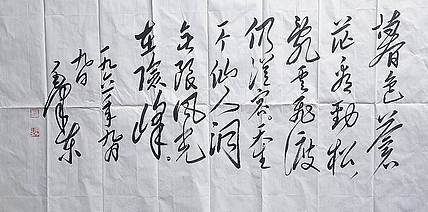 暮色蒼
茫看勁松，
亂雲飛渡
仍從容。天生
一個仙人洞
無限風光
在險峰。
一九六一年九月
九日
毛澤東